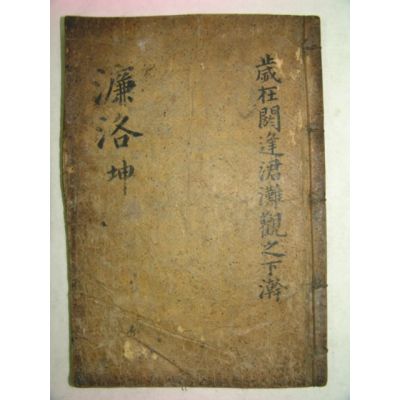 歲在閼逢涒灘觀之下澣
濂洛
坤